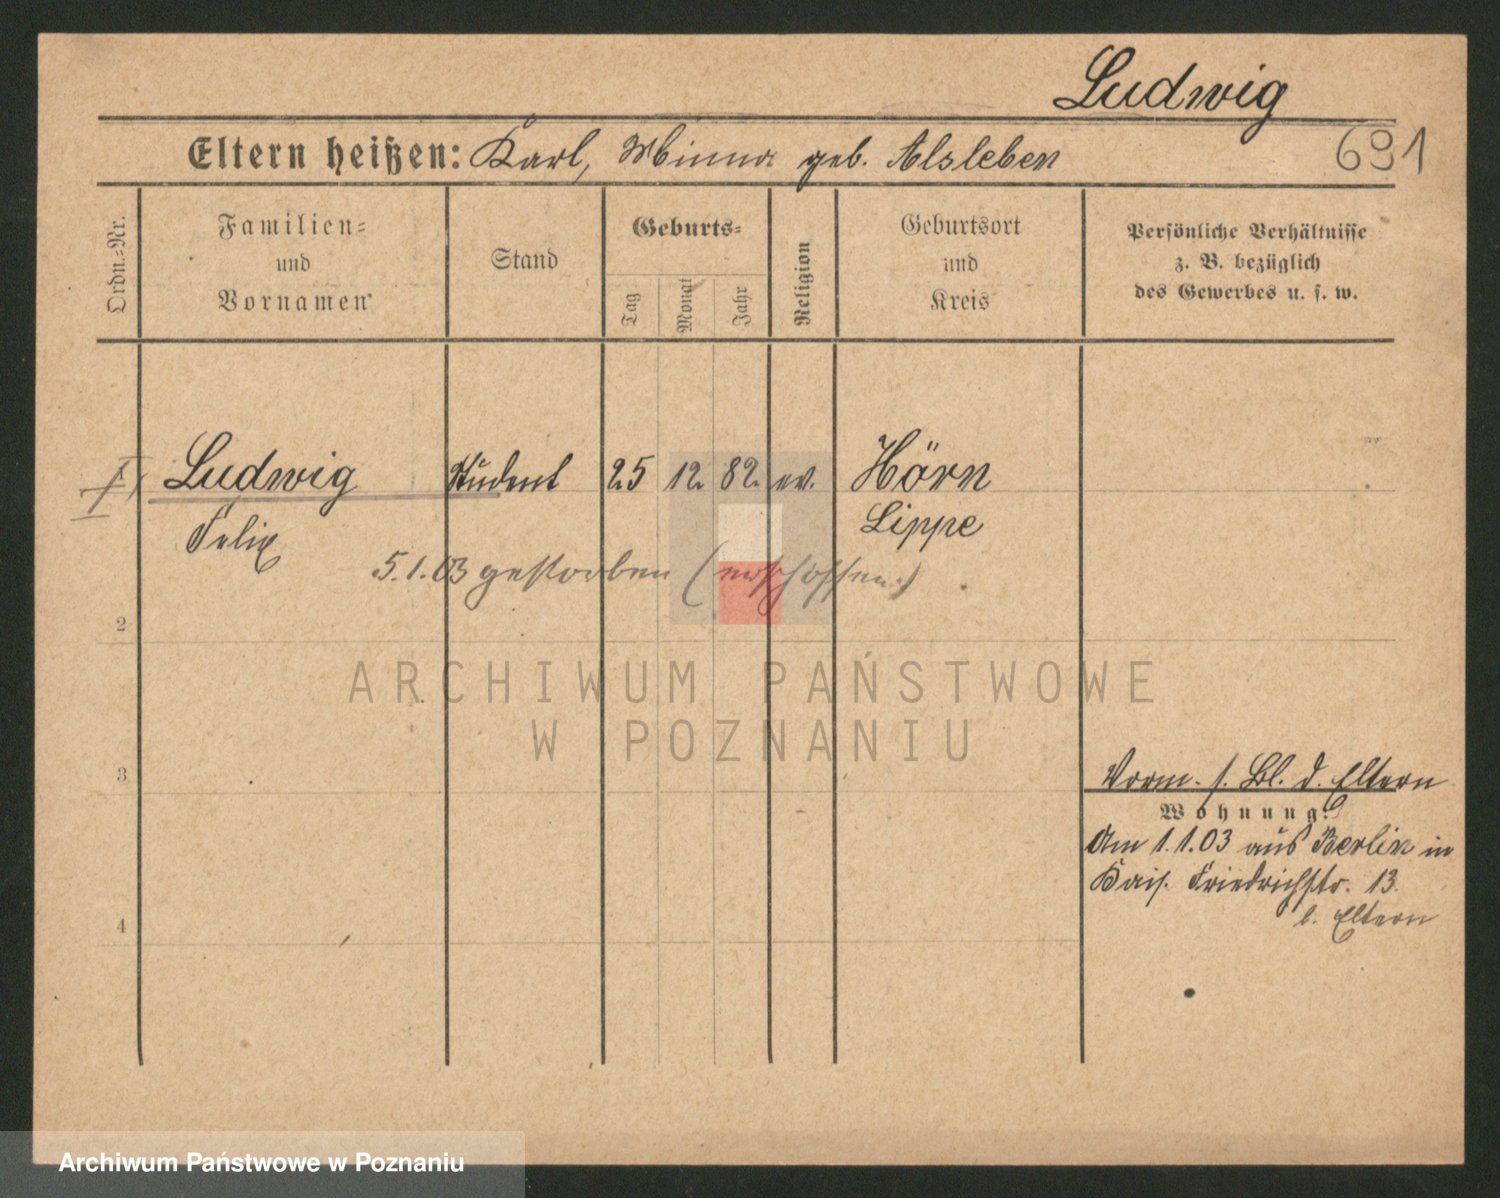 Ludwig
Eltern heißen: Karl, Minna geb. Alsleben
691
Ordn.-Nr.
Familien-
und
Vornamen
Stand
Geburts-
Tag
Monat
Jahr
Religion
Geburtsort
und
Kreis
Persönliche Verhältnisse
z. B. bezüglich
des Gewerbes u. s. w.
Ludwig Student 25 12. 82. ev. Hörn
Felix Lippe
5.1.03 gestorben (erschossen.)
2
ARCHIWUM PAŃSTWOWE
W POZNANIU
3
Vorm. s. Bl. d. Eltern
Wohnung:
Am 1.1.03 aus Berlin in
Kais. Friedrichstr. 13.
b. Eltern
4
Archiwum Państwowe w Poznaniu